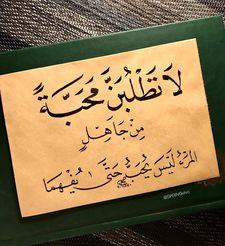 لَا تَطْلُبَنَّ مَحَبَّةً
مِنْ جَاهِلٍ
المَرْءُ لَيْسَ يُحَبُّ حَتَّى يُفْهَمَا